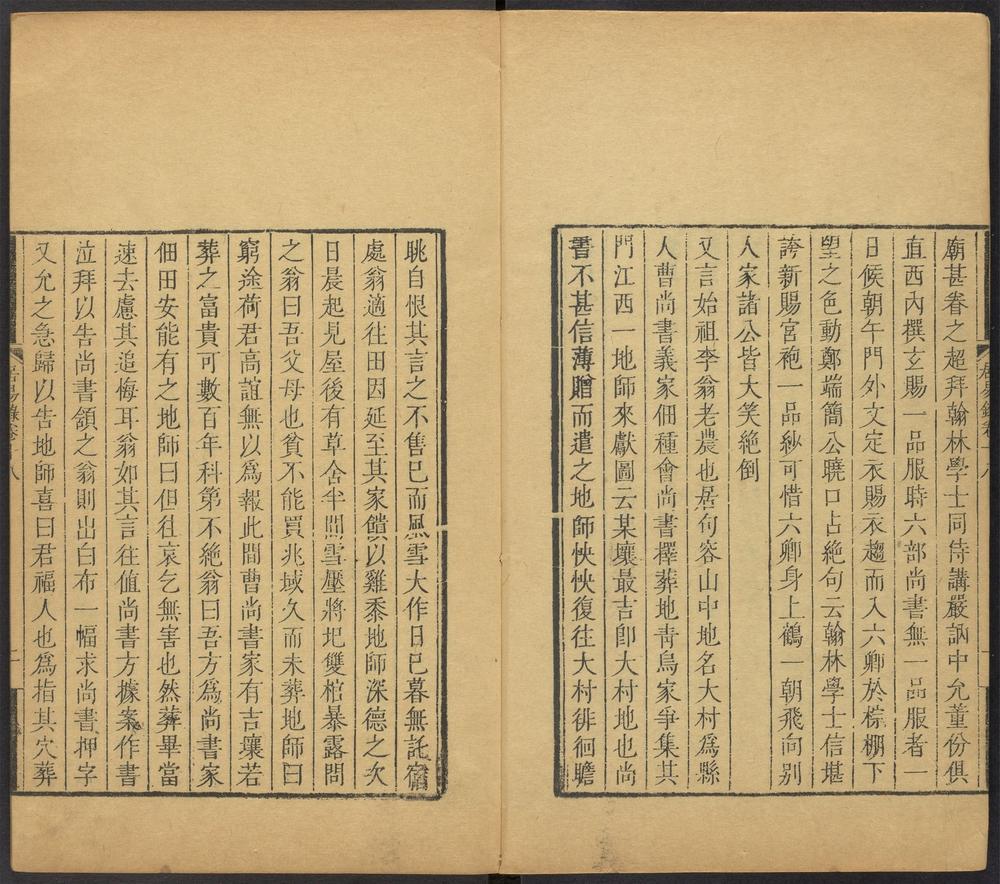 廟甚眷之超拜翰林學士同侍講嚴訥中允董份俱
直西內撰玄賜一品服時六部尚書無一品服者一
日候朝午門外文定衣賜衣趨而入六卿於棕棚下
望之色動鄭端簡公曉口占絕句云翰林學士信堪
誇新賜宮袍一品紗可惜六卿身上鶴一朝飛向別
人家諸公皆大笑絕倒
又言始祖李翁老農也居句容山中地名大村爲縣
人曹尚書義家佃種會尚書擇葬地靑烏家爭集其
門江西一地師來獻圖云某壤最吉卽大村地也尚
書不甚信薄贈而遣之地師怏怏復往大村徘徊瞻
眺自恨其言之不售已而風雪大作日已暮無託宿
處翁適往田因延至其家饋以雞黍地師深德之次
日晨起見屋後有草舍半間雪壓將圯雙棺暴露問
之翁曰吾父母也貧不能買兆域久而未葬地師曰
窮途荷君高誼無以爲報此間曹尚書家有吉壤若
葬之富貴可數百年科第不絕翁曰吾方爲尚書家
佃田安能有之地師曰但往哀乞無害也然葬畢當
速去慮其追悔耳翁如其言往值尚書方據案作書
泣拜以告尚書頷之翁則出白布一幅求尚書押字
又允之急歸以告地師喜曰君福人也爲指其穴葬
居易錄卷十八
二